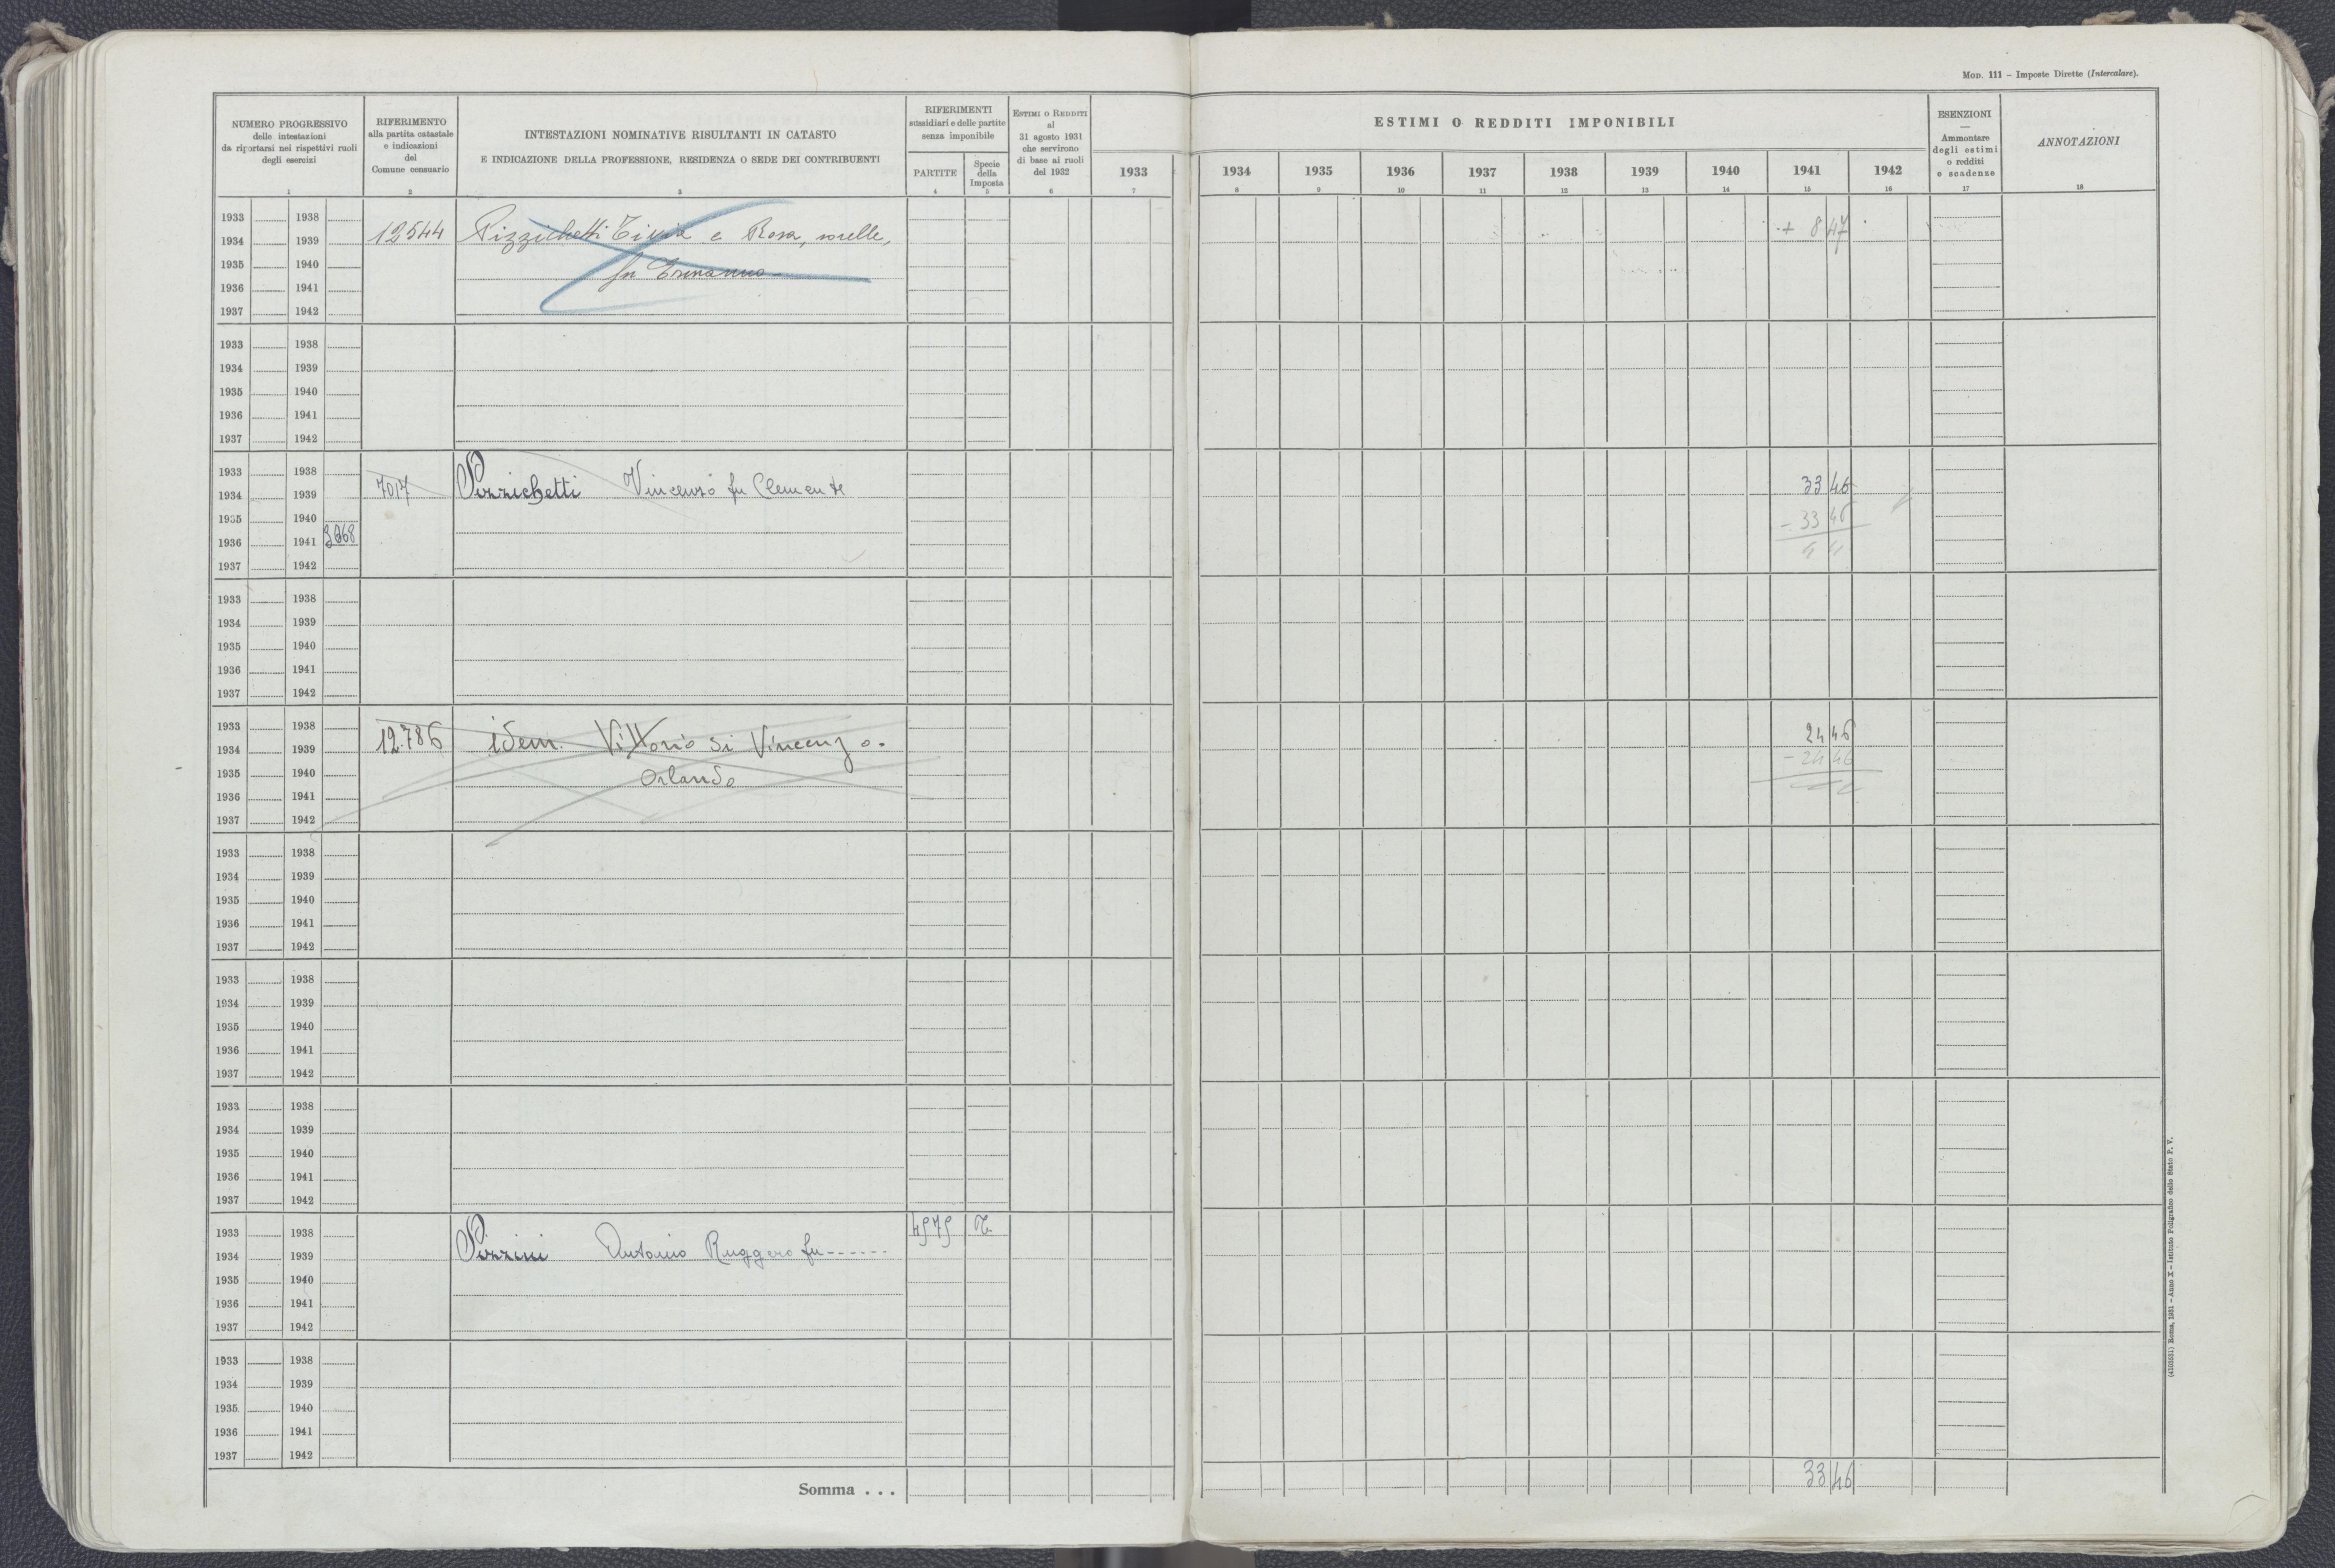 MOD. 111 – Imposte Dirette (Intercalare).
NUMERO PROGRESSIVO
delle intestazioni
da riportarsi nei rispettivi ruoli
degli esercizi
1
RIFERIMENTO
alla partita catastale
e indicazioni
del
Comune censuario
2
INTESTAZIONI NOMINATIVE RISULTANTI IN CATASTO
E INDICAZIONE DELLA PROFESSIONE, RESIDENZA O SEDE DEI CONTRIBUENTI
3
RIFERIMENTI
sussidiari e delle partite
senza imponibile
PARTITE
4
Specie
della
Imposta
5
ESTIMI O REDDITI
al
31 agosto 1931
che servirono
di base ai ruoli
del 1932
6
ESTIMI O REDDITI IMPONIBILI
1933 1934 1935 1936 1937 1938 1939 1940 1941 1942
7 8 9 10 11 12 13 14 15 16
ESENZIONI
—
Ammontare
degli estimi
o redditi
e scadenze
17
ANNOTAZIONI
18
1933 1938
12544 Pizzichetti e Rosa, sorelle, + 8 47
1934 1939
1935 1940
fu
1936 1941
1937 1942
1933 1938
1934 1939
1935 1940
1936 1941
1937 1942
1933 1938
7017 Pizzichetti Vincenzo fu Clemente 33 46
1934 1939
1935 1940
- 33 46
1936 1941 3668
1937 1942
1933 1938
1934 1939
1935 1940
1936 1941
1937 1942
1933 1938
12786 idem. Vittorio di Vincenzo. 24 46
1934 1939
- 24 46
1935 1940
Orlando
1936 1941
1937 1942
1933 1938
1934 1939
1935 1940
1936 1941
1937 1942
1933 1938
1934 1939
1935 1940
1936 1941
1937 1942
1933 1938
1934 1939
1935 1940
1936 1941
1937 1942
1933 1938 4575 T.
Pizzini Antonio Ruggero fu ------
1934 1939
1935 1940
1936 1941
1937 1942
1933 1938
1934 1939
1935 1940
1936 1941
1937 1942
Somma . . . 33 46
(4103821) Roma, 1931 – Anno X – Istituto Poligrafico dello Stato P. V.